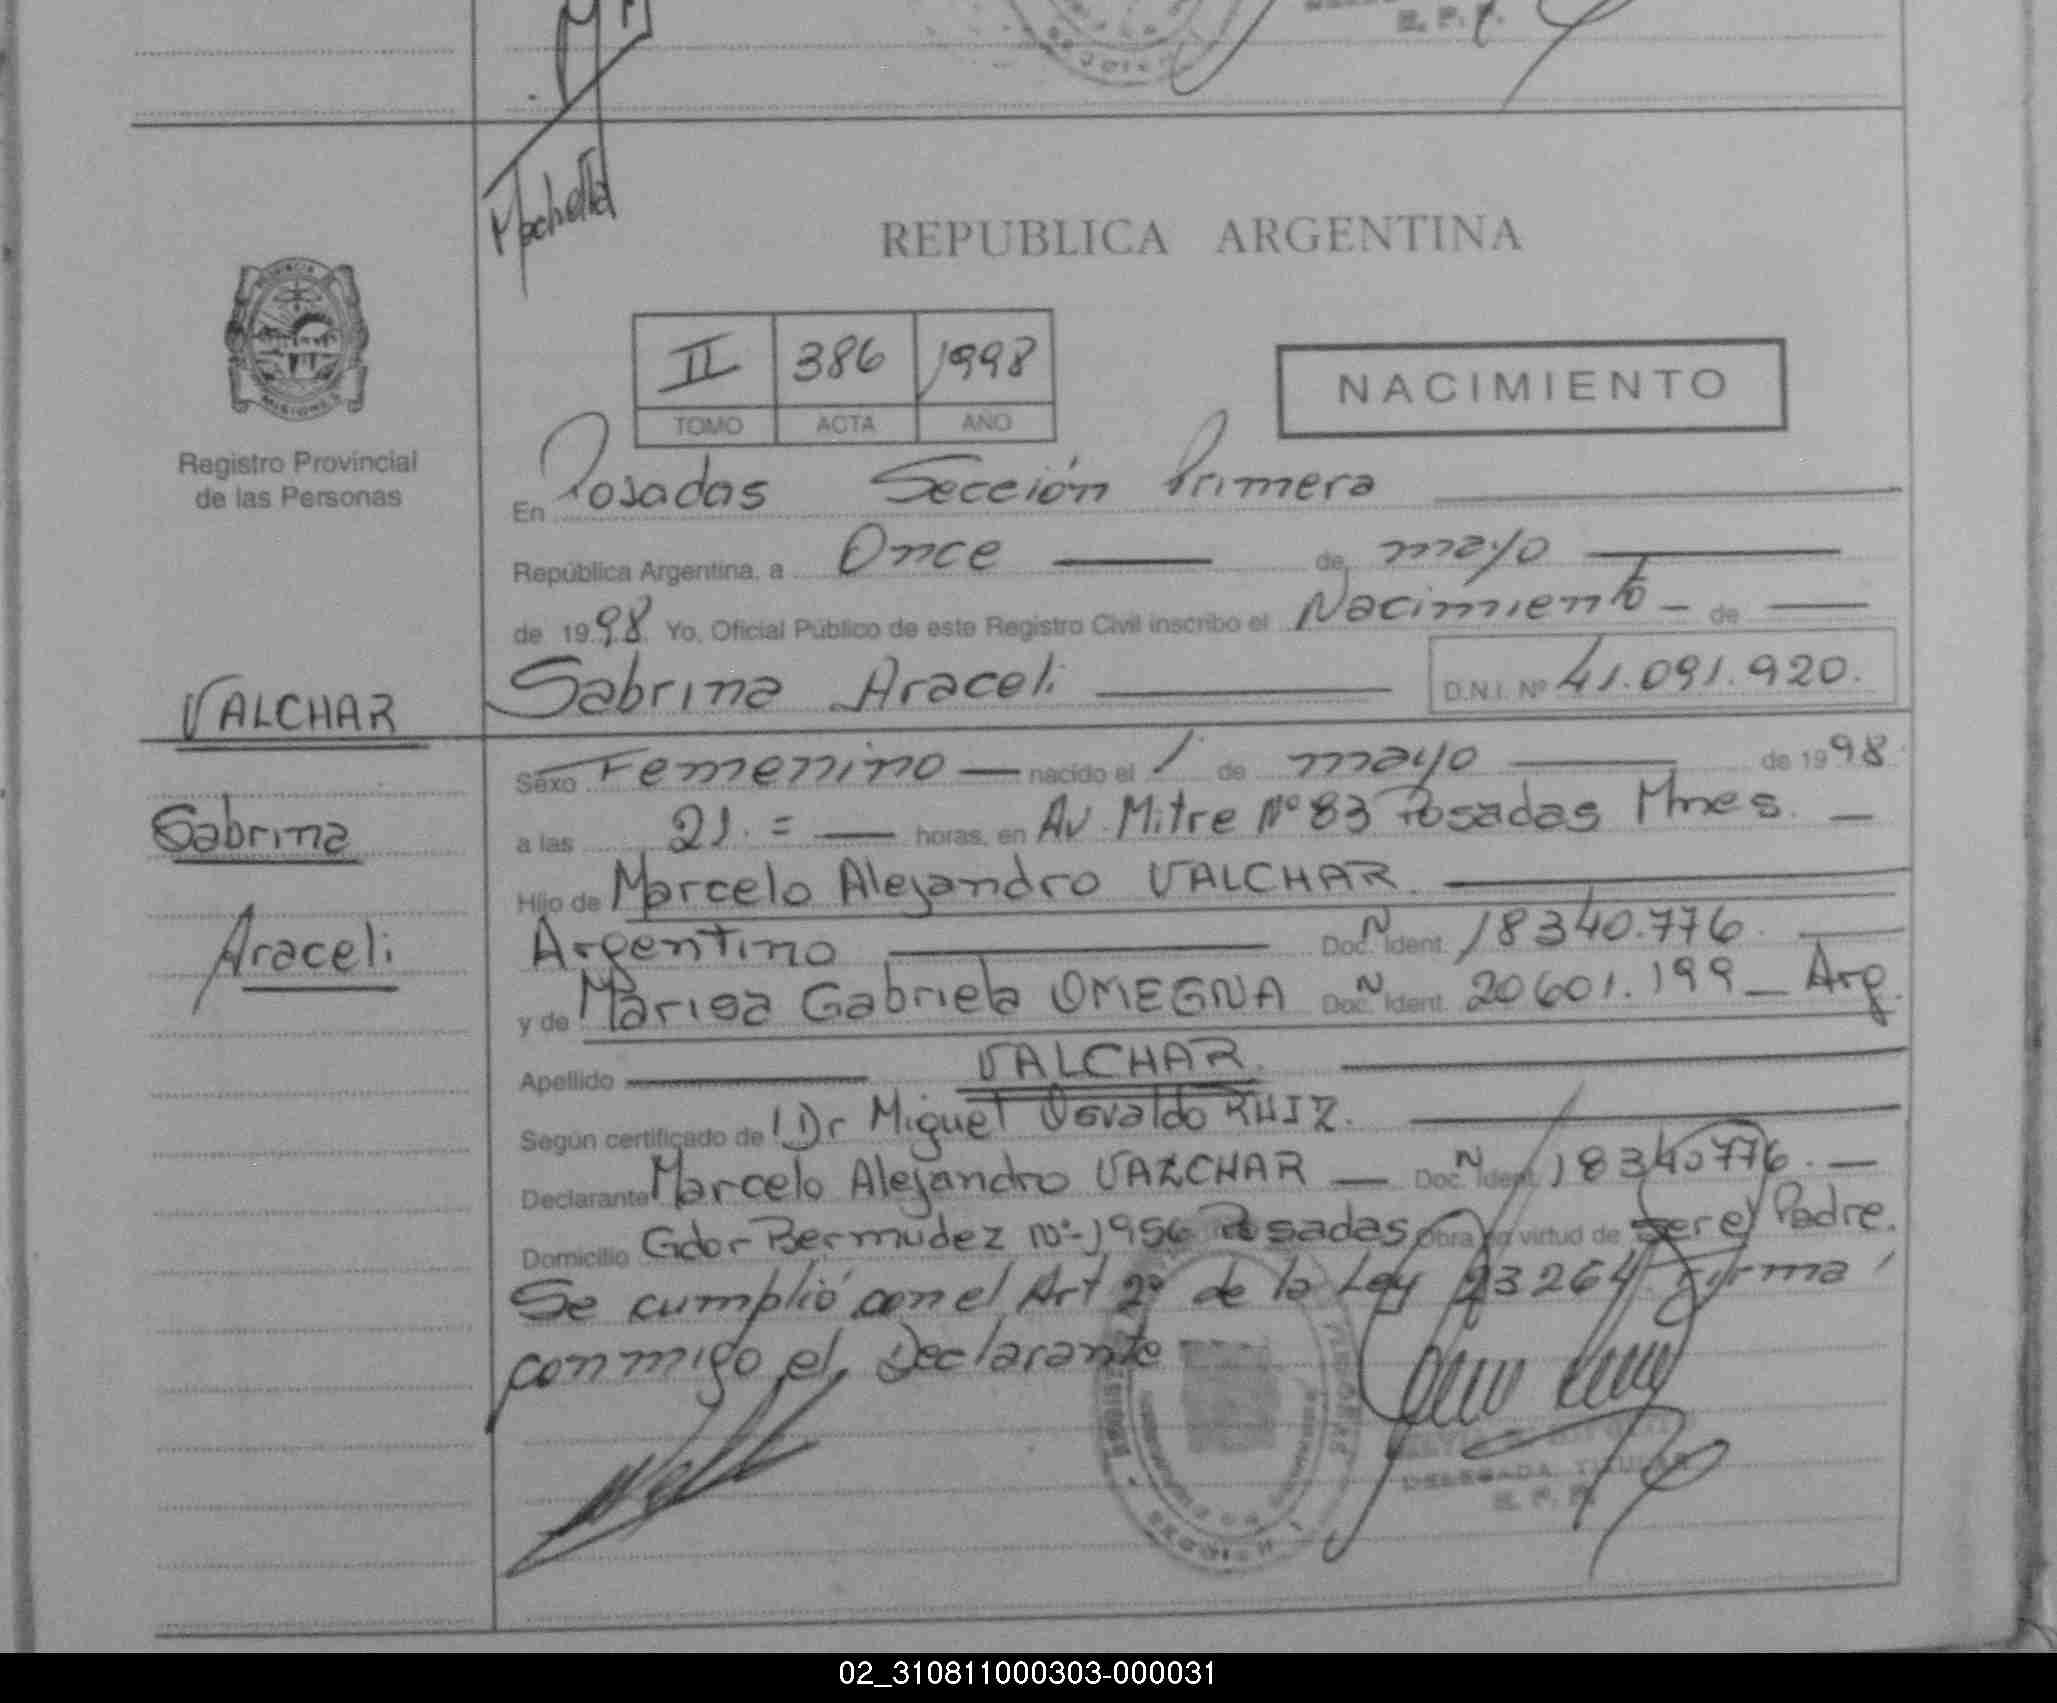 REPUBLICA ARGENTINA
II 386 1998
TOMO ACTA AÑO
NACIMIENTO
MISIONES
Registro Provincial
de las Personas
En Posadas Sección Primera
República Argentina, a Once de mayo
de 1998 Yo, Oficial Público de este Registro Civil inscribo el Nacimiento de
Sabrina Araceli D.N.I. Nº 41.091.920.
VALCHAR
Sabrina
Araceli
Sexo Femenino nacido el 1 de mayo de 1998
a las 21. = horas, en Av. Mitre Nº 83 Posadas Mnes.
Hijo de Marcelo Alejandro VALCHAR.
Argentino Doc. N Ident. 18340.776.
y de Marisa Gabriela OMEGNA Doc. N Ident. 20601.199 Arg.
Apellido VALCHAR.
Según certificado de Dr Miguel Osvaldo RUIZ.
Declarante Marcelo Alejandro VALCHAR Doc. N Ident. 18340776.
Domicilio Gdor Bermudez Nº 1956 Posadas Obra en virtud de ser el Padre.
Se cumplió con el Art 2º de la Ley 23264 Firma
conmigo el Declarante
DELEGADA TITULAR
R. P. P.
02_310811000303-000031